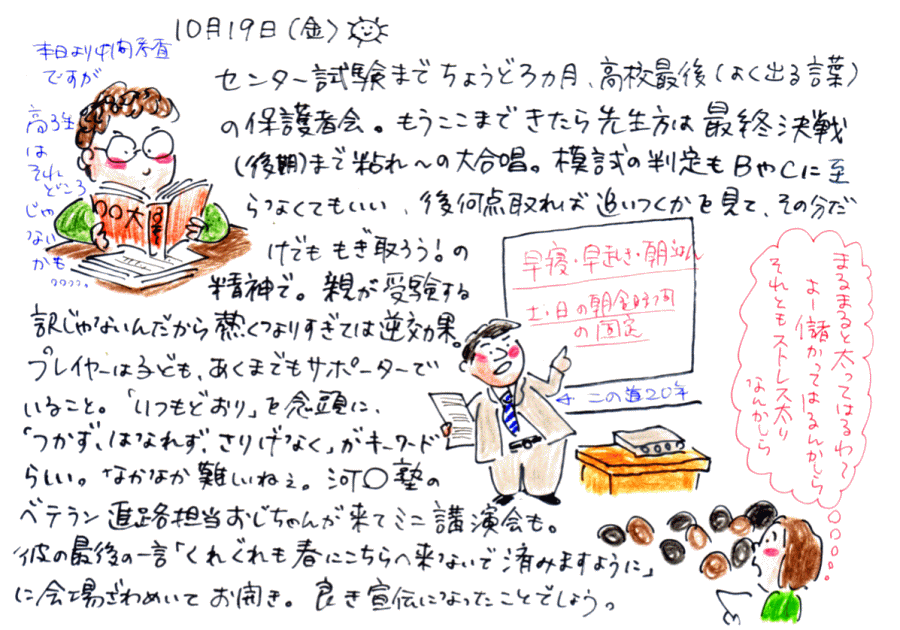 10月19日(金)
本日より中間考査
ですが
高3生
は
それ
どころ
じゃ
ない
かも
○○大
センター試験までちょうど3ヵ月、高校最後(よく出る言葉)
の保護者会。もうここまできたら先生方は最終決戦
(後期)まで粘れ〜の大合唱。模試の判定もBやCに至
らなくてもいい、後何点取れば追いつくかを見て、その分だ
けでももぎ取ろう!の
精神で。親が受験する
訳じゃないんだから熱くなりすぎては逆効果。
プレイヤーは子ども、あくまでもサポーターで
いること。「いつもどおり」を念頭に、
「つかず、はなれず、さりげなく」がキーワード
らしい。なかなか難しいねぇ。河○塾の
ベテラン進路担当おじちゃんが来てミニ講演会も。
彼の最後の一言「くれぐれも春にこちらへ来ないで済みますように」
に会場ざわめいてお開き。良き宣伝になったことでしょう。
早寝・早起き・朝ごはん
土・日の朝食時間
の固定
← この道20年
まるまると太ってはるわぁ
よー儲かってはるんかしら
それともストレス太り
なんかしら